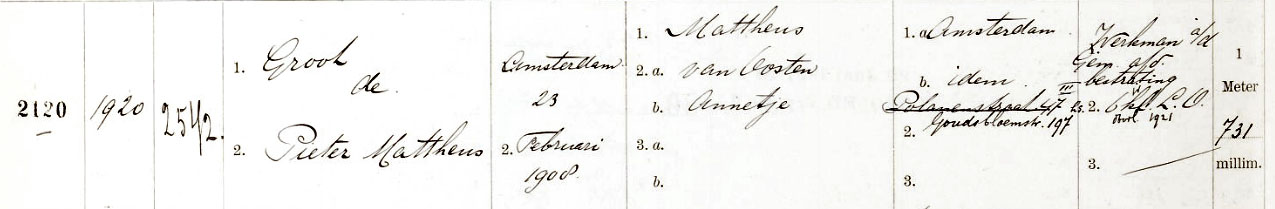 2120
1920
2542.
1. Groot
de
2. Pieter Mattheus
Amsterdam
23
2. Februari
1908.
1. Mattheus
2. a. van Oosten
b. Annetje
3. a.
b.
1. a. Amsterdam
b. idem
III
Polanenstraat 47 hs.
2. Goudsbloemstr. 197
3.
Werkman a/d
Gem. afd.
bestrating
2. L. O.
1921
3.
1
Meter
731
millim.